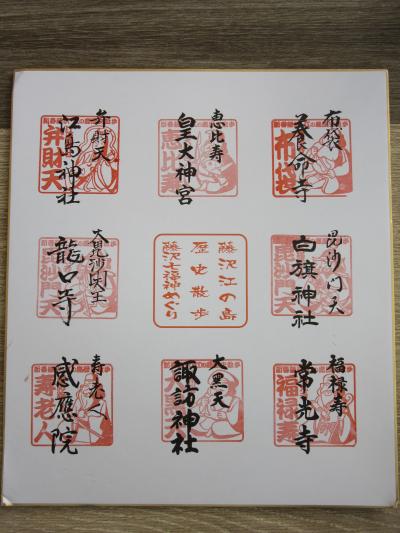 布袋
養命寺
布袋
恵比寿
皇大神宮
恵比寿
弁財天
江島神社
弁財天
毘沙門天
白旗神社
毘沙門天
藤沢江の島
歴史散歩
藤沢七福神めぐり
毘沙門天王
龍口寺
毘沙門天
福禄寿
常光寺
福禄寿
大黒天
諏訪神社
大黒天
寿老人
感應院
寿老人